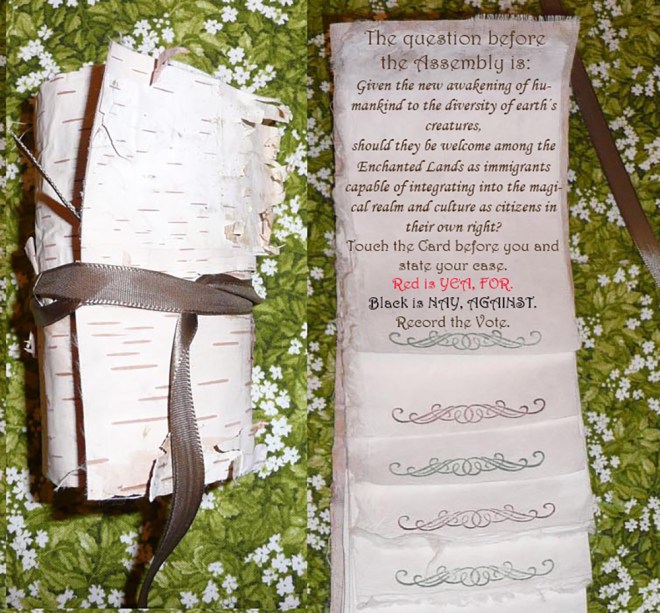 The question before
the Assembly is:
Given the new awakening of hu-
mankind to the diversity of earth's
creatures,
should they be welcome among the
Enchanted Lands as immigrants
capable of integrating into the magi-
cal realm and culture as citizens in
their own right?
Touch the Card before you and
state your case.
Red is YEA, FOR.
Black is NAY, AGAINST.
Record the Vote.